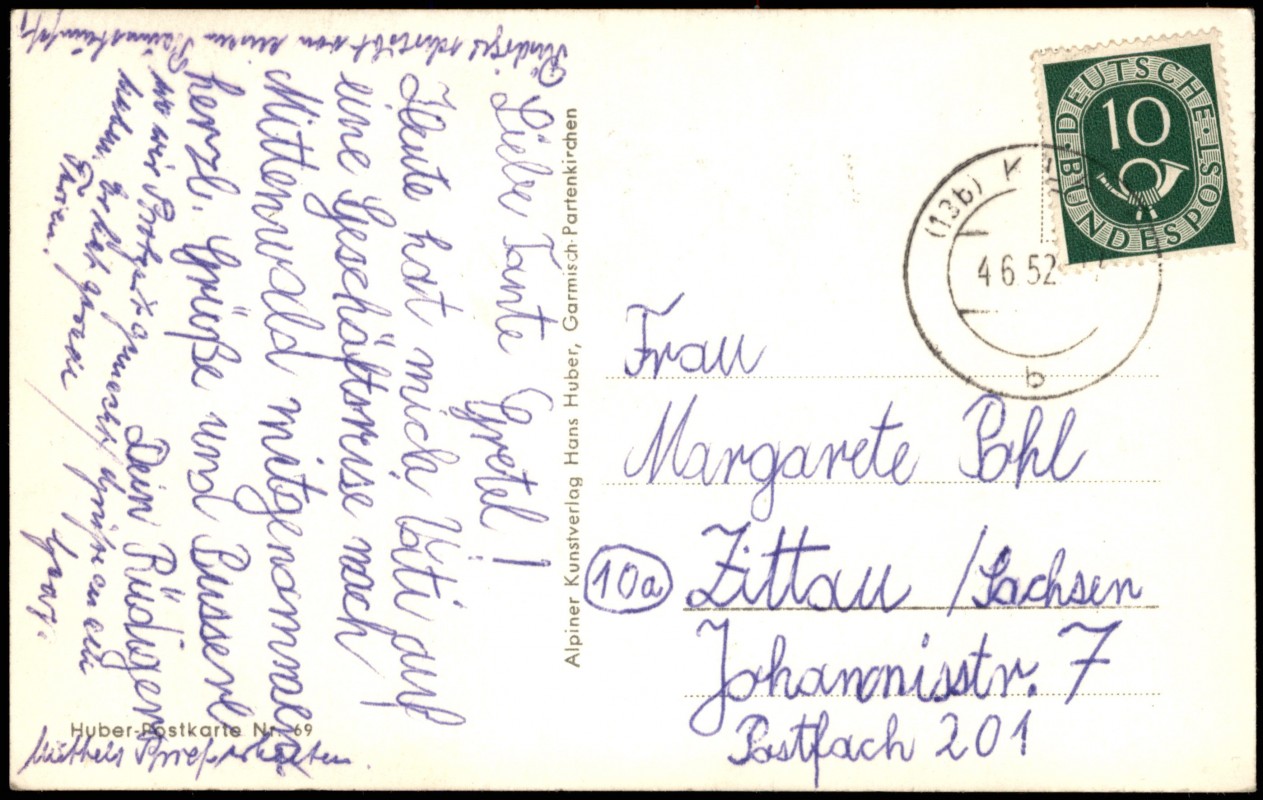 Liebe Tante Gretel!
Heute hat mich Vati auf
eine Geschäftsreise nach
Mittenwald mitgenommen.
herzl. Grüße und Busserl
Dein Rüdiger.
wo wir
haben.
Rüdiger schreibt von einem
Huber-Postkarte Nr. 69
Alpiner Kunstverlag Hans Huber, Garmisch-Partenkirchen
DEUTSCHE BUNDESPOST
10
(13b) K
4 6.52
b
Frau
Margarete Pohl
10a Zittau /Sachsen
Johannisstr. 7
Postfach 201